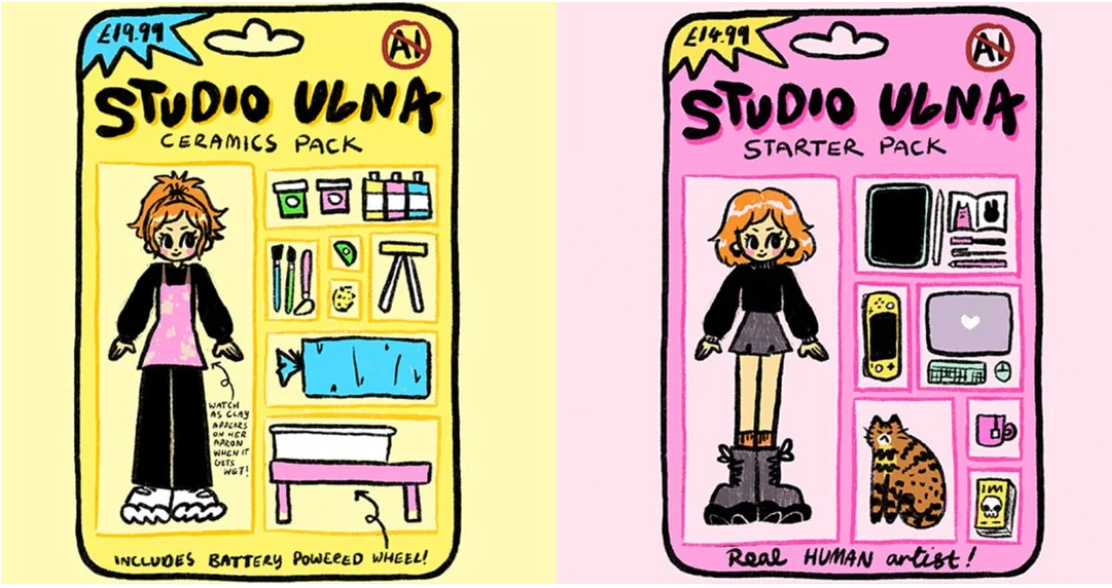 £19.99
AI
STUDIO ULNA
CERAMICS PACK
WATCH
AS CLAY
APPEARS
ON HER
APRON
WHEN IT
GETS
WET!
INCLUDES BATTERY POWERED WHEEL!
£14.99
AI
STUDIO ULNA
STARTER PACK
IM
Real HUMAN artist!